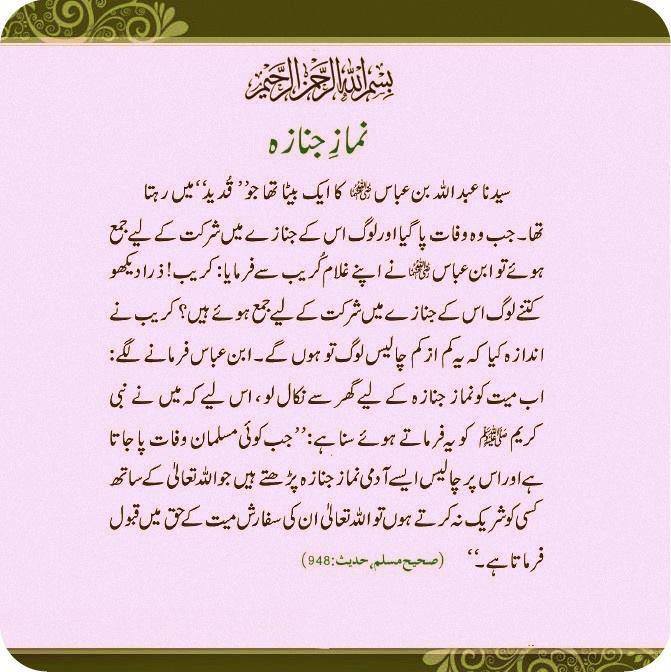 بِسْمِ اللهِ الرَّحْمٰنِ الرَّحِيْمِ
نمازِ جنازہ
سیدنا عبداللہ بن عباس رضی اللہ عنہما کا ایک بیٹا تھا جو ’’قُدید‘‘ میں رہتا
تھا۔ جب وہ وفات پا گیا اور لوگ اس کے جنازے میں شرکت کے لیے جمع
ہوئے تو ابن عباس رضی اللہ عنہما نے اپنے غلام کُریب سے فرمایا: کریب! ذرا دیکھو
کتنے لوگ اس کے جنازے میں شرکت کے لیے جمع ہوئے ہیں؟ کریب نے
اندازہ کیا کہ یہ کم از کم چالیس لوگ تو ہوں گے۔ ابن عباس فرمانے لگے:
اب میت کو نماز جنازہ کے لیے گھر سے نکال لو، اس لیے کہ میں نے نبی
کریم ﷺ کو یہ فرماتے ہوئے سنا ہے: ’’جب کوئی مسلمان وفات پا جاتا
ہے اور اس پر چالیس ایسے آدمی نماز جنازہ پڑھتے ہیں جو اللہ تعالیٰ کے ساتھ
کسی کو شریک نہ کرتے ہوں تو اللہ تعالیٰ ان کی سفارش میت کے حق میں قبول
فرماتا ہے۔‘‘ (صحیح مسلم، حدیث:948)